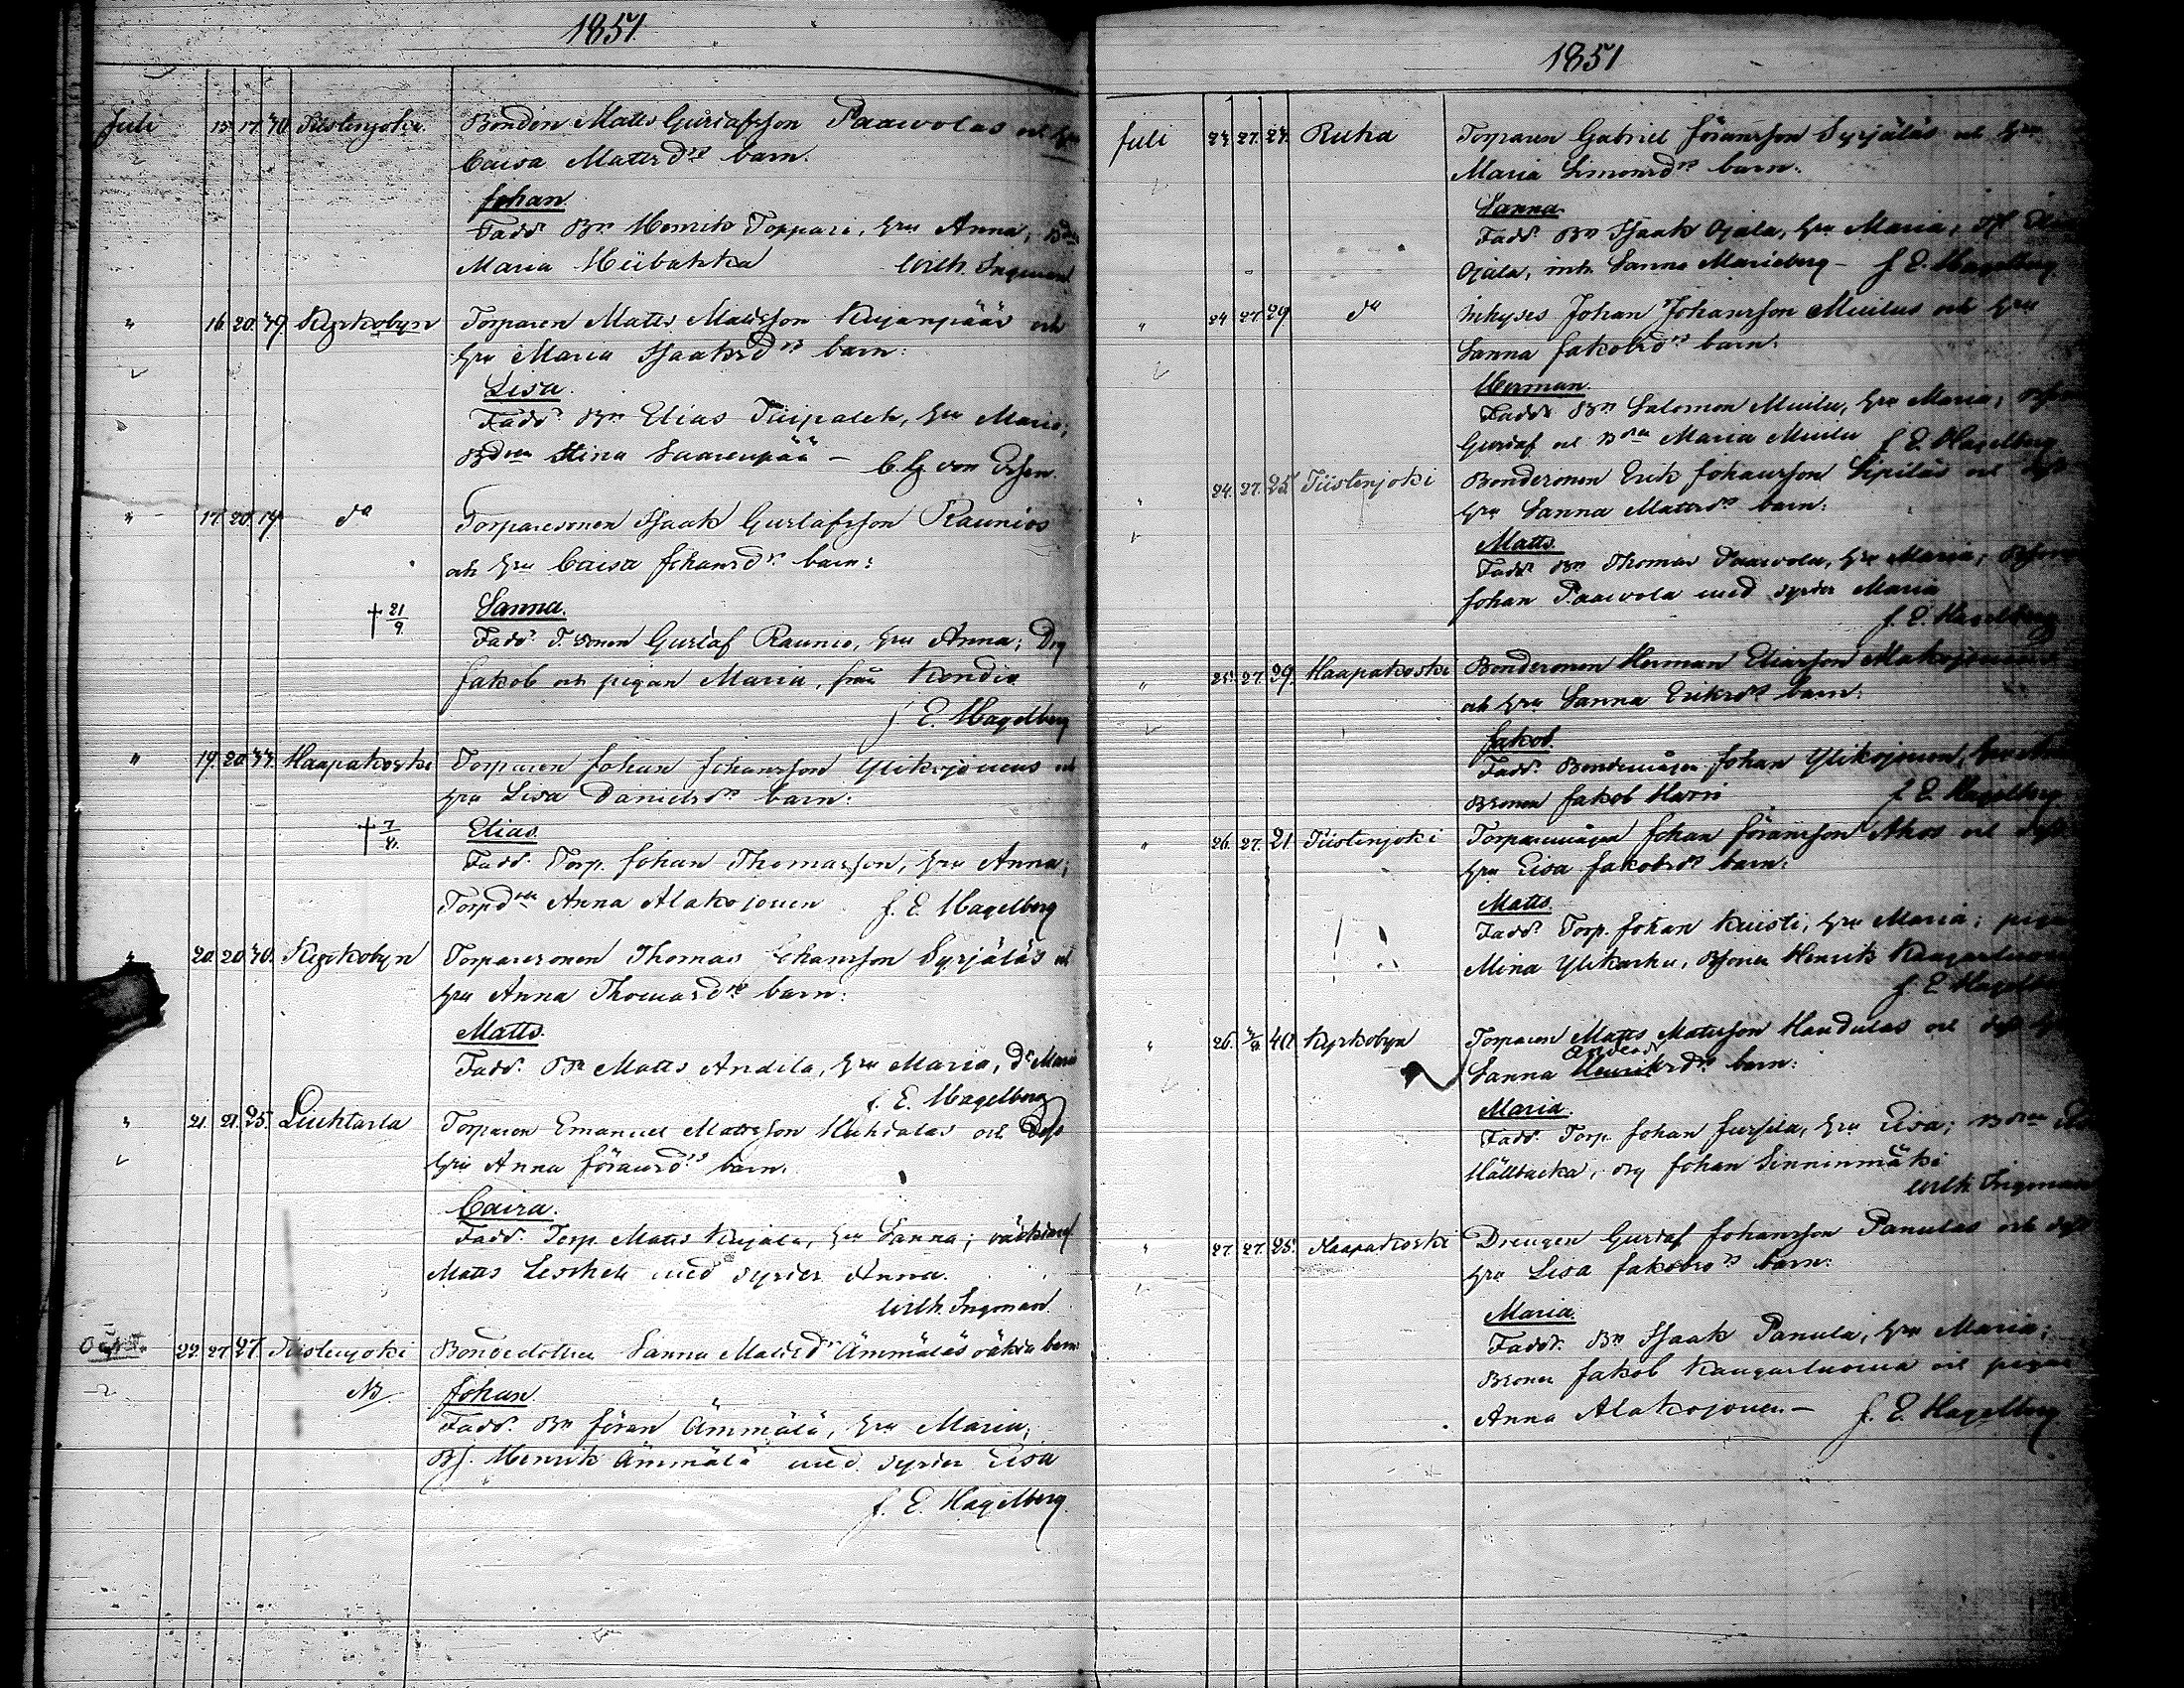 1851
Juli 15 17 40 Tiistenjoki Bonden Matts Gustafsson Paavolas och hu
Caisa Mattsdr barn.
Johan
Fadd. Bn Henrik Toppari, hu Anna,
Maria Hiibakka Wilh. Ingman
" 16. 20. 39. Kyrkobyn Torparen Matts Mattsson Kujanpääs och
hu Maria Isaksdr barn:
Lisa.
Fadd. Bn Elias Tiipaleh, hu Maria,
Bdren Stina Saarenpää – C. G. von Essen.
" 17. 20. 19. do Torparesonen Isaak Gustafsson Raunios
och hu Caisa Johansdr barn:
† 21/9 Sanna.
Fadd. T. sonen Gustaf Raunio, hu Anna; Drg
Jakob och pigan Maria, från Kondio
J. E. Hagelberg
" 19. 20. 33. Haapakoski Torparen Johan Johansson Ylikojonens och
hu Lisa Danielsdr barn:
† 7/8. Elias
Fadd. Torp. Johan Thomasson, hu Anna;
Torpdren Anna Alakojonen J. E. Hagelberg
" 20. 20. 30. Kyrkobyn Torparesonen Thomas Johansson Syrjäläs och
hu Anna Thomasdr barn:
Matts.
Fadd. Bn Matts Andila, hu Maria, dr Maria
J. E. Hagelberg
" 21. 21. 25. Liuhtarla Torparen Emanuel Mattsson Huhtalas och dess
hu Anna Jöransdr barn.
Caisa.
Fadd. Torp. Matts Kujala, hu Sanna;
Matts Leskelä med syster Anna.
Wilh. Ingman.
22. 27. 27. Tiistenjoki Bondedottren Sanna Mattsdr Ämmäläs oäkta barn
NB Johan
Fadd. Bn Jöran Ämmälä, hu Maria,
Bs. Henrik Ämmälä med syster Lisa
J. E. Hagelberg.
1851
Juli 23. 27. 27. Ruha Torparen Gabriel Jöransson Syrjäläs och hu
Maria Simonsdr barn:
Sanna.
Fadd. Bn Isaak Ojala, hu Maria,
Ojala, inh. Sanna Marieberg – J. E. Hagelberg
" 24 27. 29 do Inhyses Johan Johansson Muilus och hu
Sanna Jakobsdr barn:
Herman.
Fadd. Bn Salomon Muilu, hu Maria,
Gustaf och Bdren Maria Muilu J. E. Hagelberg
" 24. 27. 25 Tiistenjoki Bondesonen Erik Johansson Sipiläs och dess
hu Sanna Mattsdr barn:
Matts.
Fadd. Bn Thomas Paavola, hu Maria,
Johan Paavola med syster Maria
J. E. Hagelberg
" 25. 27. 39. Haapakoski Bondesonen Herman Eliasson
och hu Sanna Eriksdr barn:
Jakob.
Fadd. Bondemågen Johan Ylikojonen,
Bsonen Jakob Harri J. E. Hagelberg
" 26. 27. 21 Tiistenjoki Torparemågen Johan Jöransson Ahos och dess
hu Lisa Jakobsdr barn:
Matts.
Fadd. Torp. Johan Kuisti, hu Maria; pigan
Mina Ylikarhu, Bsonen Henrik
J. E. Hagelberg
" 26. 40 Kyrkobyn Torparen Matts Mattsson Handulas och dess hu
Anders
Sanna Henriksdr barn:
Maria.
Fadd. Torp. Johan Jussila, hu Lisa; Bdren
Hällbacka, drg Johan Sinninmäki
Wilh. Ingman
" 27. 27. 25. Haapakoski Drengen Gustaf Johansson Panulas och dess
hu Lisa Jakobsdr barn:
Maria.
Fadd. Bn Isaak Panula, hu Maria;
Bsonen Jakob Kangasluoma och pigan
Anna Alakojonen – J. E. Hagelberg